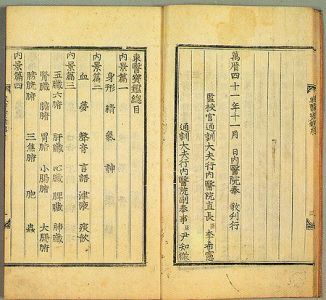 萬曆四十一年十一月 日內醫院奉 敎刊行
監校官通訓大夫行內醫院直長 李希憲
通訓大夫行內醫院副奉事 尹知微
東醫寶鑑總目
內景篇一
身形 精 氣 神
內景篇二
血 夢 聲音 言語 津液 痰飮
內景篇三
五臟六腑 肝臟 心臟 脾臟 肺臟
腎臟 膽腑 胃腑 小腸腑 大腸腑
膀胱腑 三焦腑 胞 蟲
內景篇四